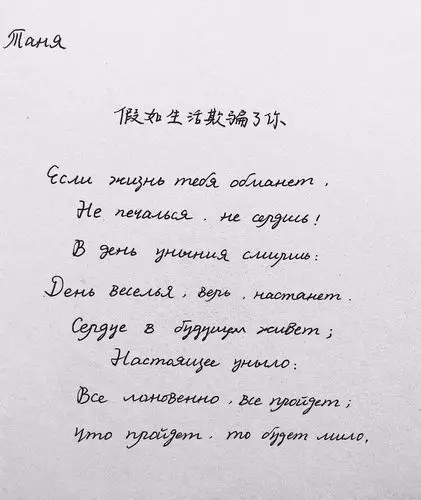 Таня
假如生活欺骗了你
Если жизнь тебя обманет,
Не печалься, не сердись!
В день уныния смирись:
День веселья, верь, настанет.
Сердце в будущем живет;
Настоящее уныло:
Все мгновенно, все пройдет;
Что пройдет, то будет мило.